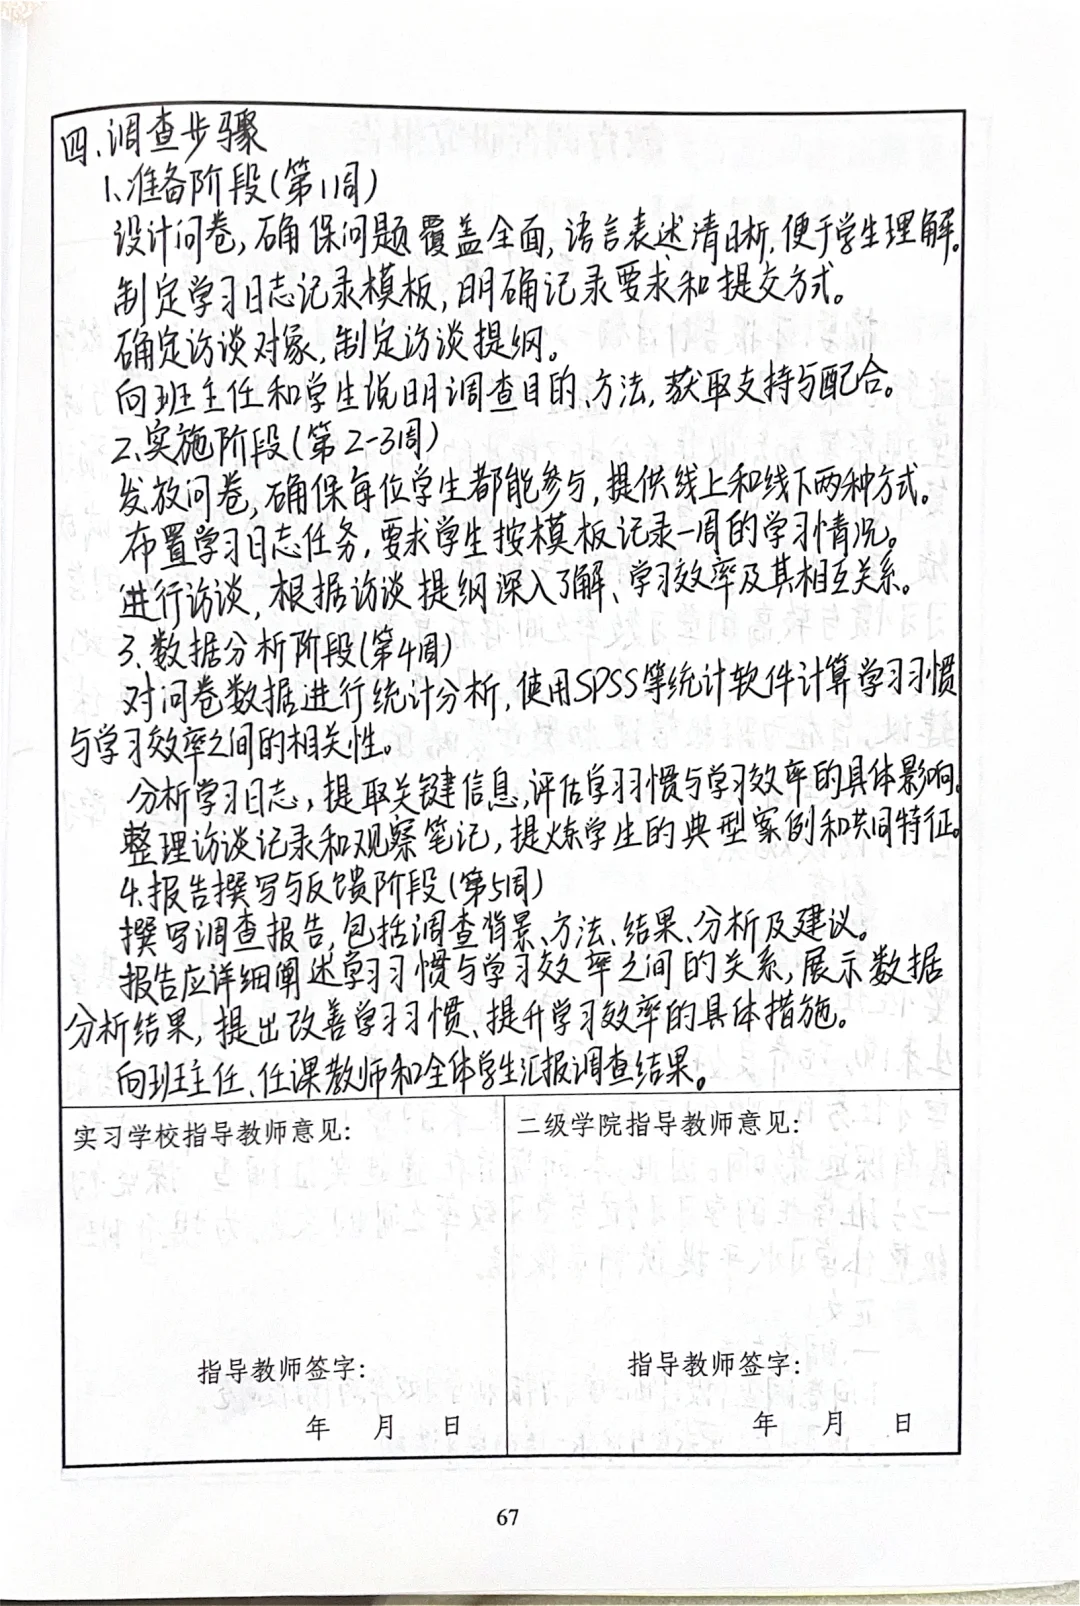 四、调查步骤
1、准备阶段(第1周)
设计问卷,确保问题覆盖全面,语言表述清晰,便于学生理解。
制定学习日志记录模板,明确记录要求和提交方式。
确定访谈对象,制定访谈提纲。
向班主任和学生说明调查目的、方法,获取支持与配合。
2、实施阶段(第2-3周)
发放问卷,确保每位学生都能参与,提供线上和线下两种方式。
布置学习日志任务,要求学生按模板记录一周的学习情况。
进行访谈,根据访谈提纲深入了解、学习效率及其相互关系。
3、数据分析阶段(第4周)
对问卷数据进行统计分析,使用SPSS等统计软件计算学习习惯
与学习效率之间的相关性。
分析学习日志,提取关键信息,评估学习习惯与学习效率的具体影响。
整理访谈记录和观察笔记,提炼学生的典型案例和共同特征。
4.报告撰写与反馈阶段(第5周)
撰写调查报告,包括调查背景、方法、结果、分析及建议。
报告应详细阐述学习习惯与学习效率之间的关系,展示数据
分析结果,提出改善学习习惯、提升学习效率的具体措施。
向班主任、任课教师和全体学生汇报调查结果。
实习学校指导教师意见:
指导教师签字:
年 月 日
二级学院指导教师意见:
指导教师签字:
年 月 日
67